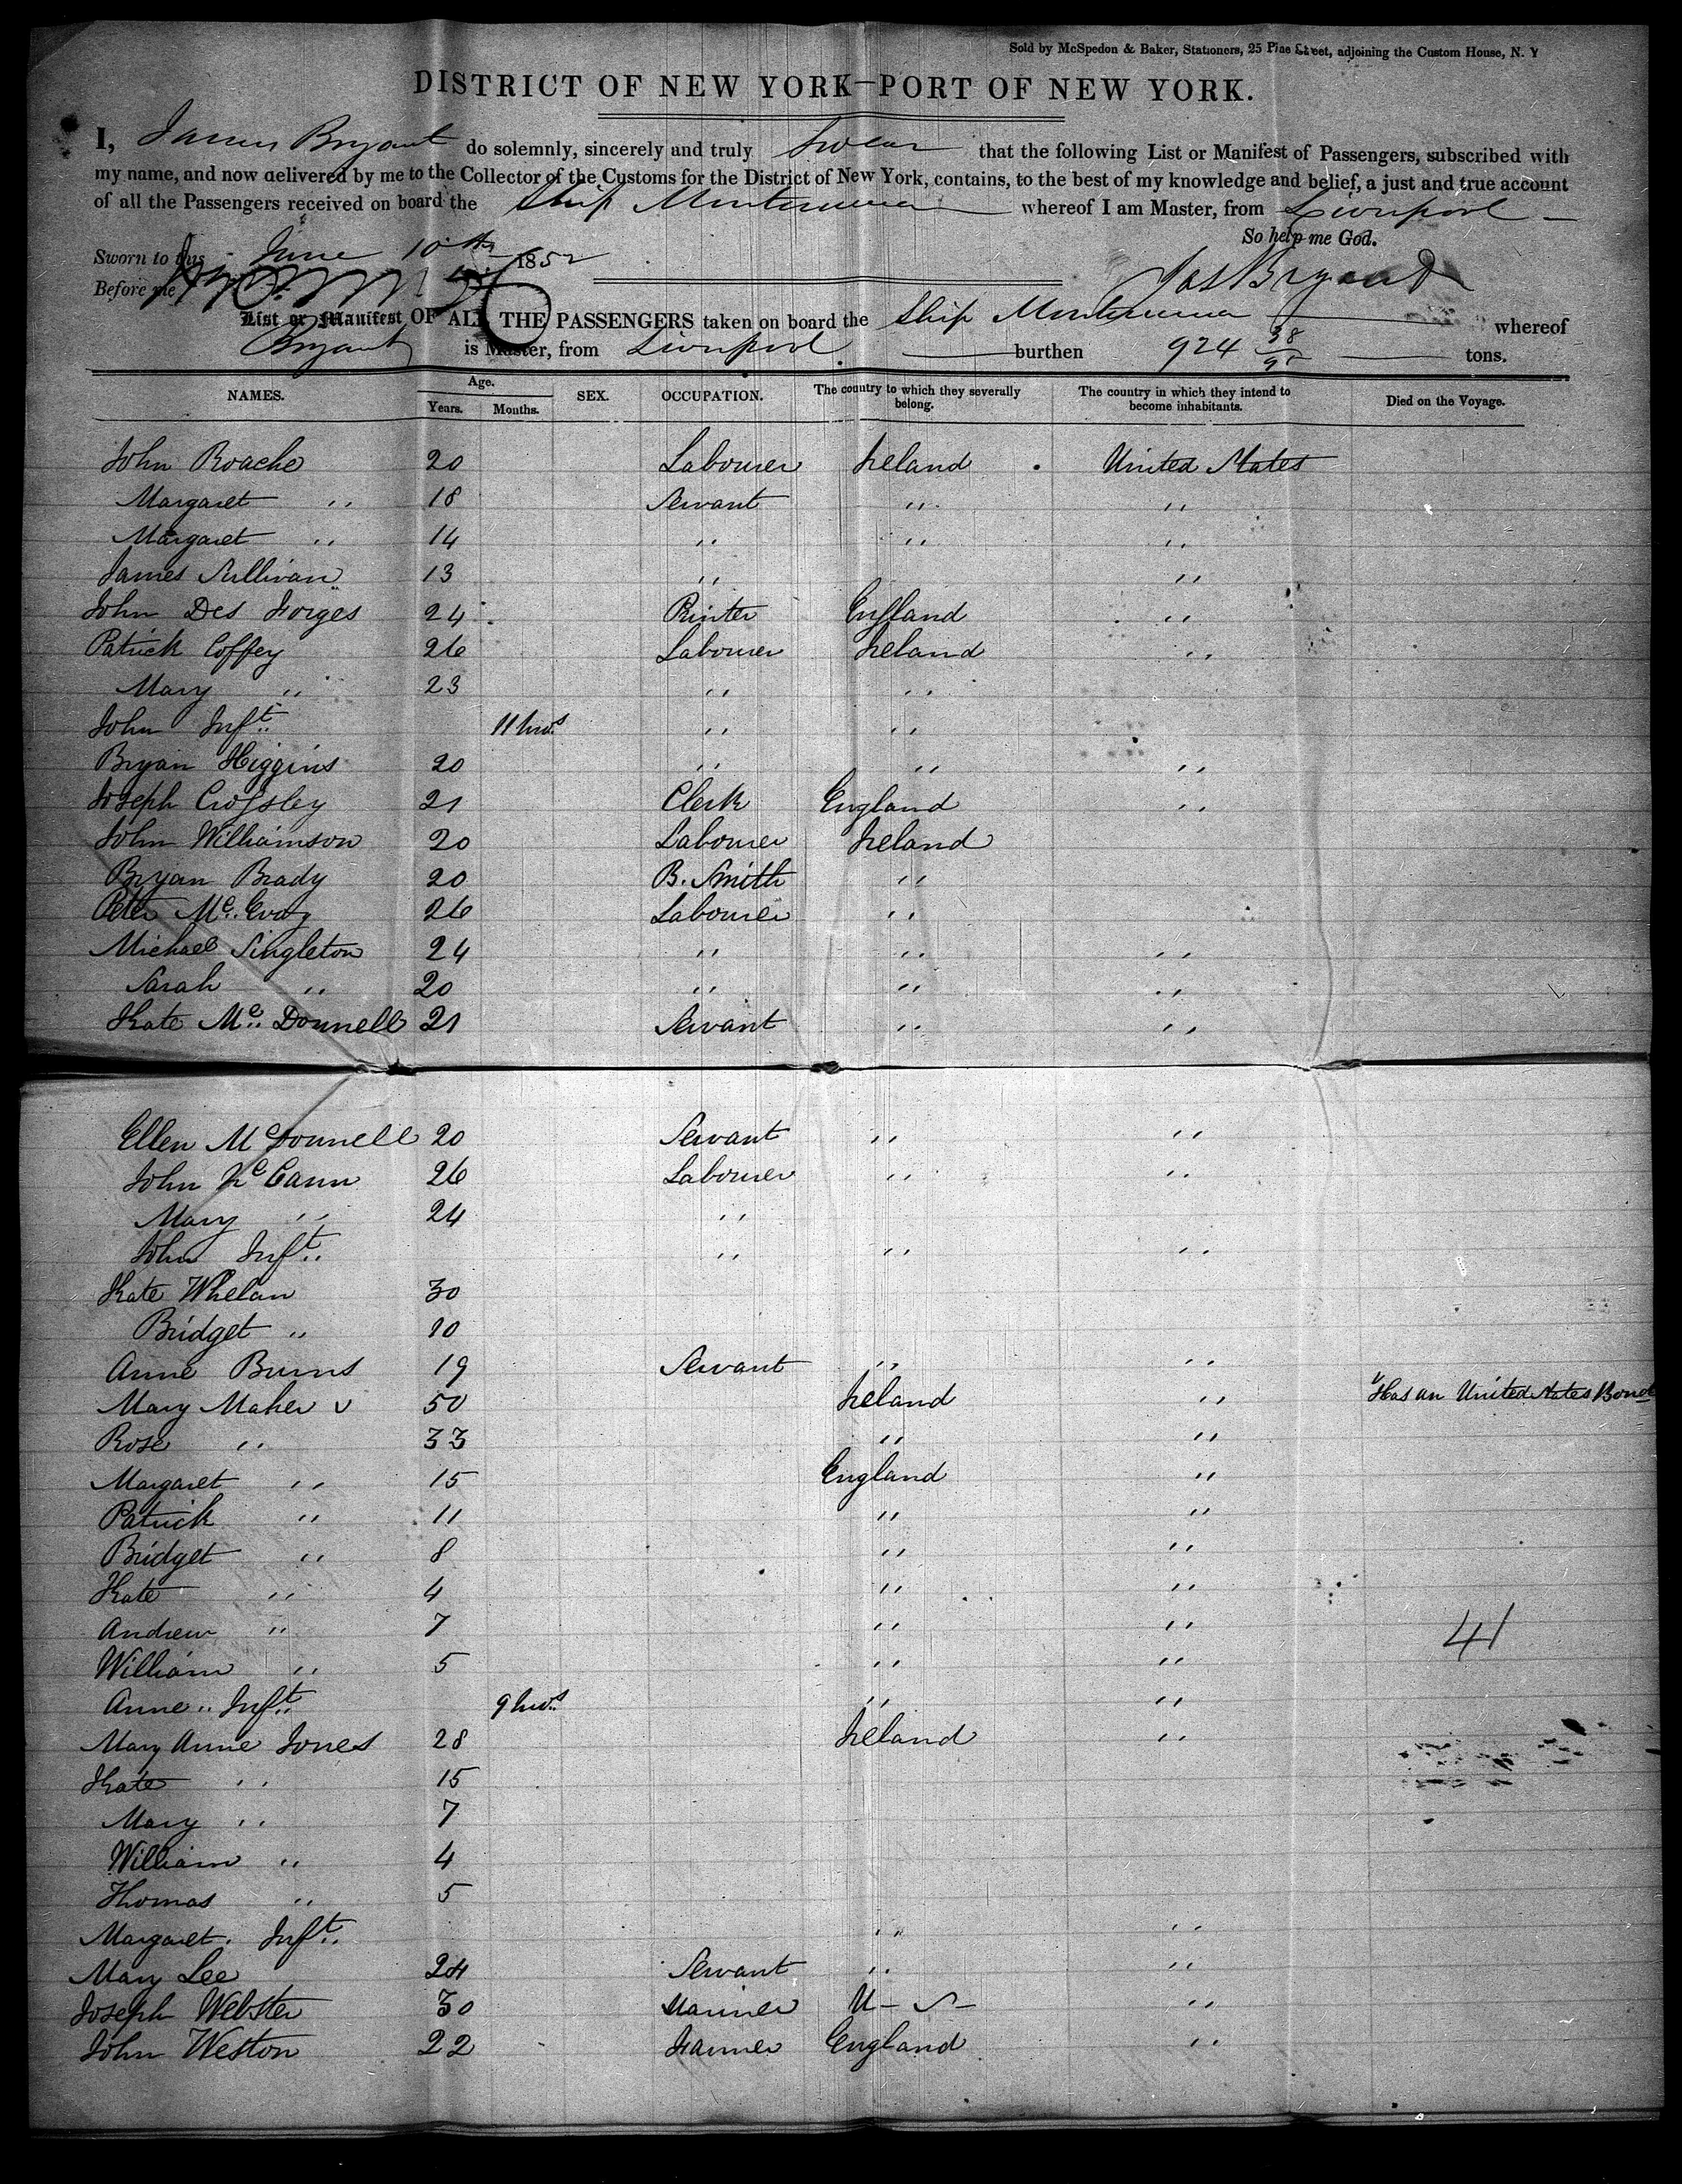 Sold by McSpedon & Baker, Stationers, 25 Pine Street, adjoining the Custom House, N. Y
DISTRICT OF NEW YORK—PORT OF NEW YORK.
I, James Bryant do solemnly, sincerely and truly Swear that the following List or Manifest of Passengers, subscribed with
my name, and now delivered by me to the Collector of the Customs for the District of New York, contains, to the best of my knowledge and belief, a just and true account
of all the Passengers received on board the Ship Montezuma whereof I am Master, from Liverpool
So help me God.
Sworn to this June 10th 1852
Before me Jas Bryant
List or Manifest OF ALL THE PASSENGERS taken on board the Ship Montezuma whereof
Bryant is Master, from Liverpool burthen 924 38/95 tons.
NAMES. Age. Years. Months. SEX. OCCUPATION. The country to which they severally belong. The country in which they intend to become inhabitants. Died on the Voyage.
John Roache 20 Labourer Ireland United States
Margaret " 18 Servant " "
Margaret " 14 " " "
James Sullivan 13 " "
John Des Forges 24 Printer England "
Patrick Coffey 26 Labourer Ireland "
Mary " 23 " "
John Inft. 11 mos. " "
Bryan Higgins 20 " " "
Joseph Crofsley 21 Clerk England "
John Williamson 20 Labourer Ireland
Bryan Brady 20 B. Smith "
Peter Mc. Evoy 26 Labourer "
Michael Singleton 24 " " "
Sarah " 20 " " "
Kate Mc. Donnell 21 Servant " "
Ellen McDonnell 20 Servant " "
John McCann 26 Labourer " "
Mary " 24 "
John Inft. " " "
Kate Whelan 30
Bridget " 10
Anne Burns 19 Servant " "
Mary Maher v 50 Ireland " Has an United States Bond
Rose " 33 " "
Margaret " 15 England "
Patrick " 11 " "
Bridget " 8 " "
Kate " 4 " "
Andrew " 7 " " 41
William " 5 " "
Anne " Inft. 9 mos. " "
Mary Anne Jones 28 Ireland "
Kate " 15
Mary " 7
William " 4
Thomas " 5
Margaret. Inft. " "
Mary Lee 24 Servant " "
Joseph Webster 30 Mariner U - S - "
John Weston 22 Farmer England "